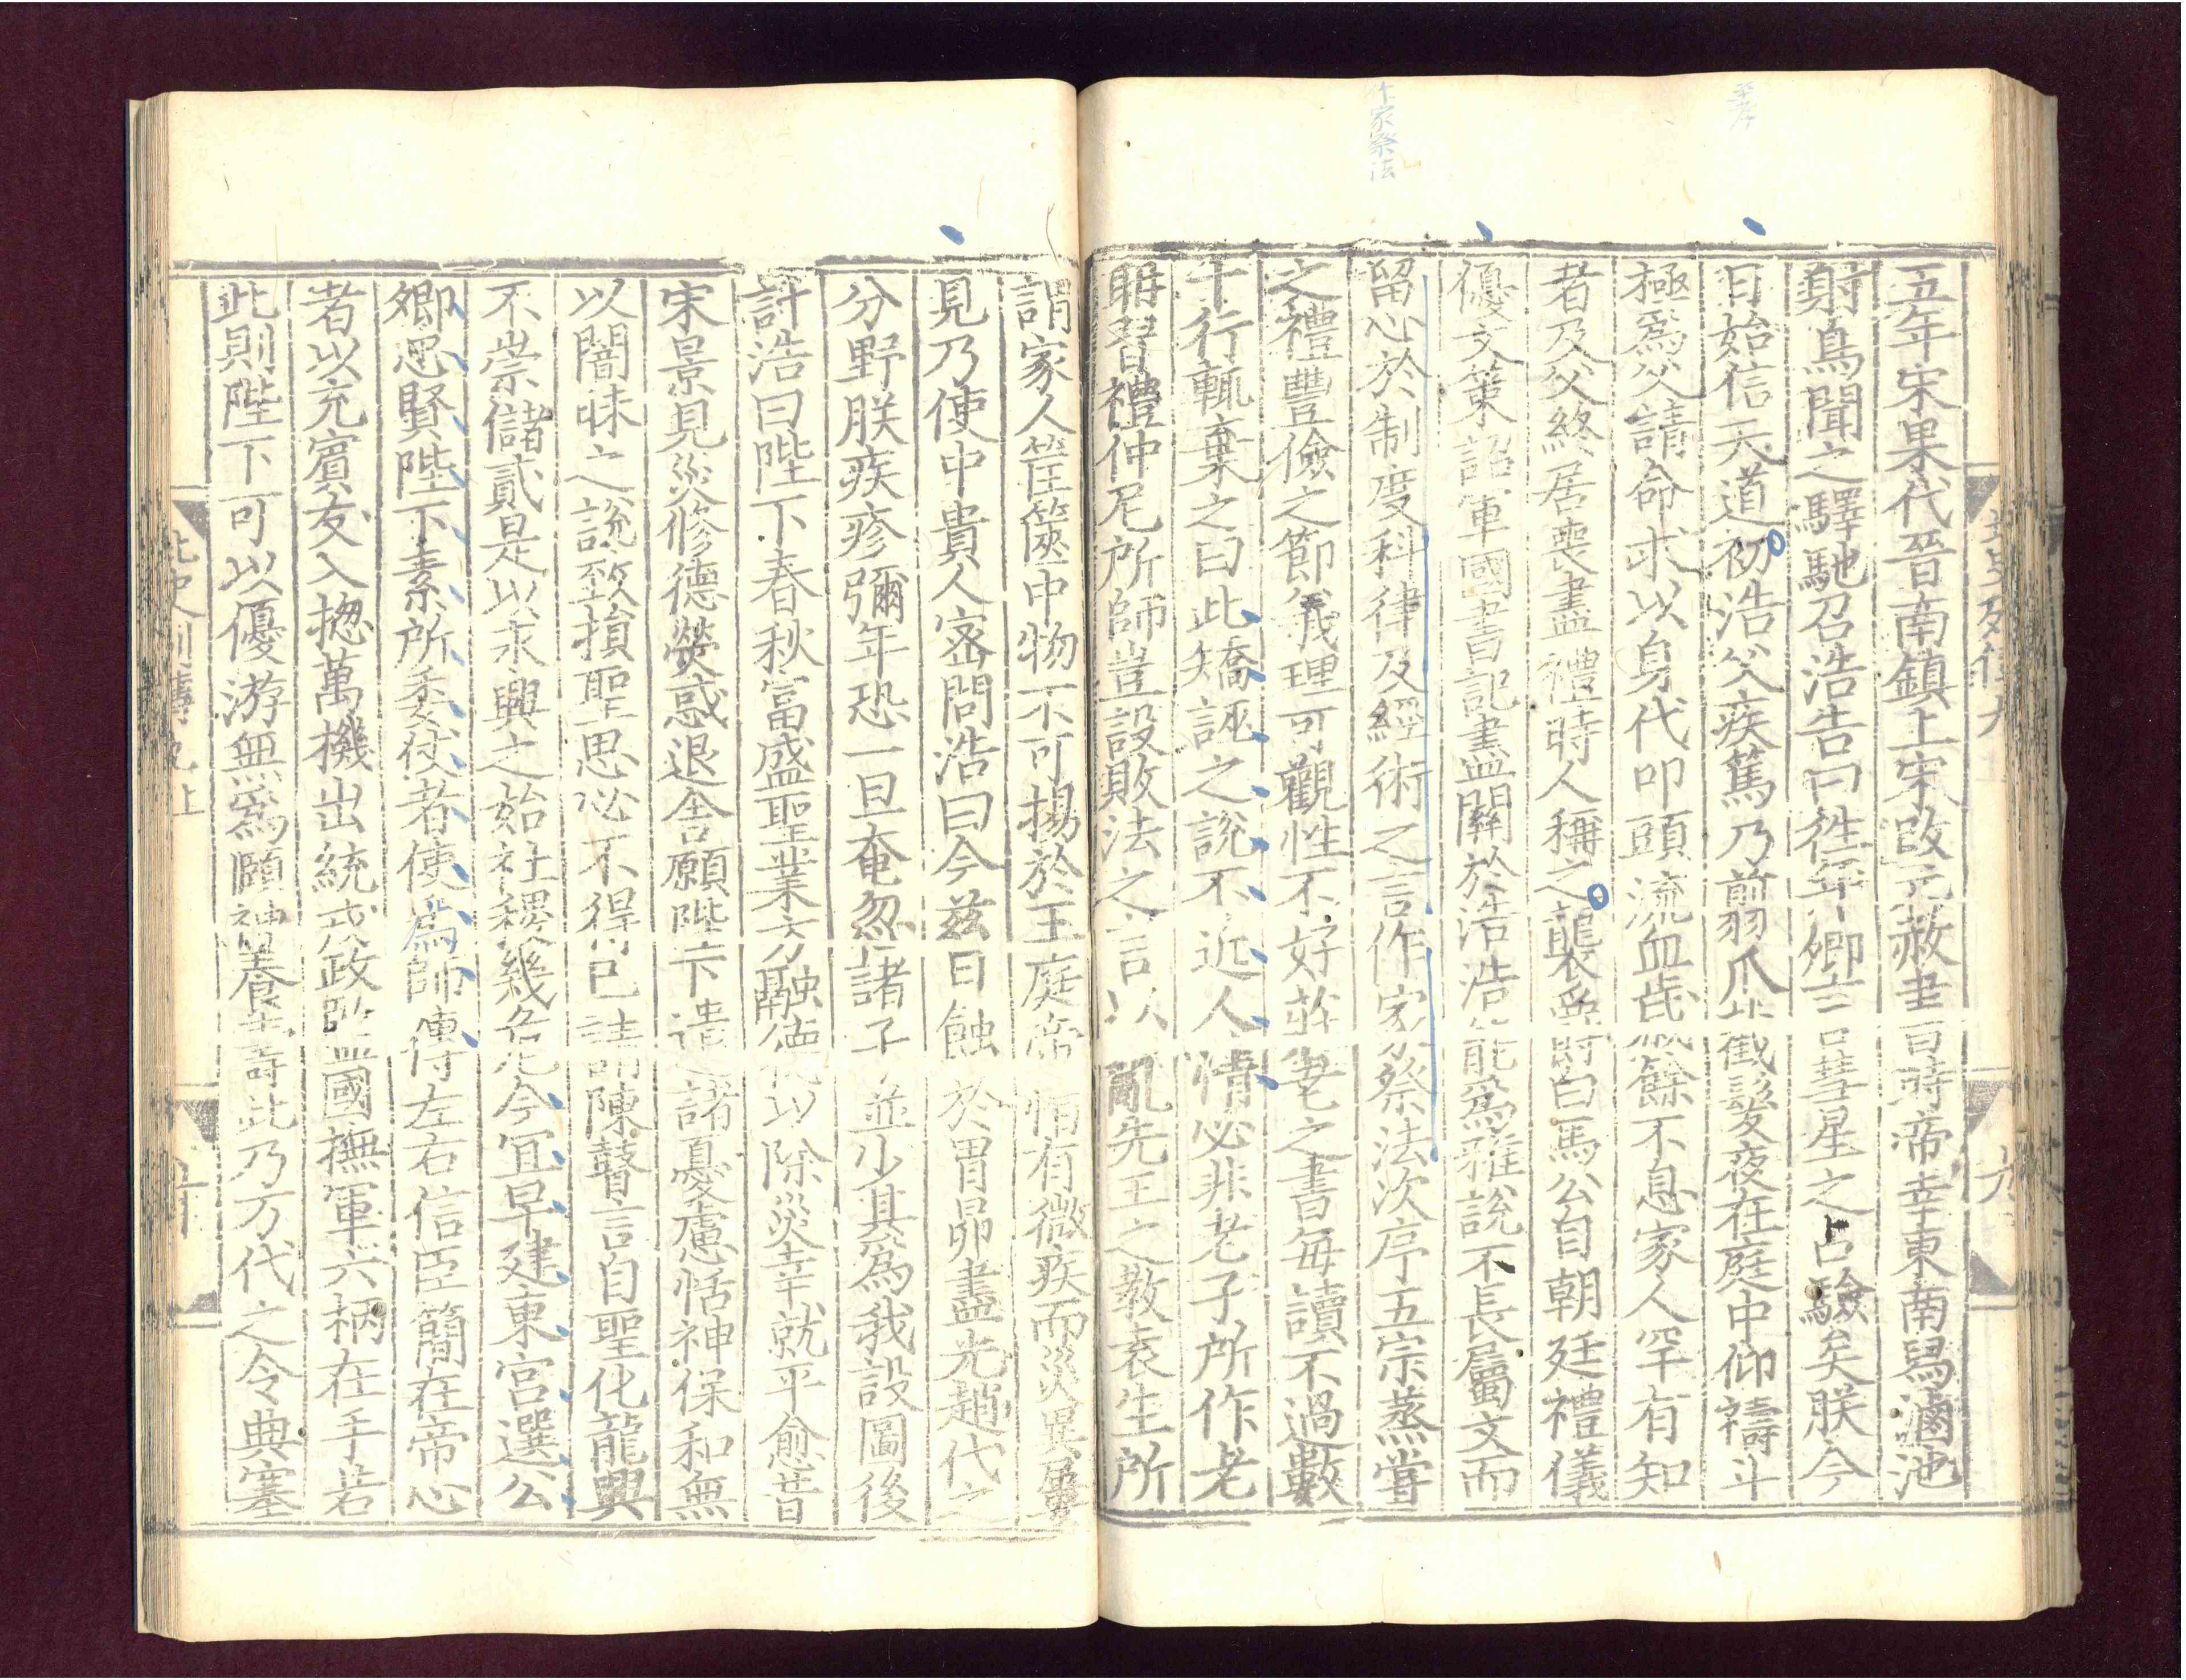 至孝
作家祭法
五年宋果代晉南鎮上宋改元赦書時帝幸東南舄滷池
射鳥聞之驛馳召浩告曰徃年卿言彗星之占驗矣朕今
日始信天道初浩父疾篤乃剪爪截髮夜在庭中仰禱斗
極爲父請命求以身代叩頭流血歲餘不息家人罕有知
者及父終居喪盡禮時人稱之襲爵白馬公自朝廷禮儀
優文策詔軍國書記盡關於浩浩能爲雜說不長屬文而
留心於制度科律及經術之言作家祭法次序五宗蒸嘗
之禮豐儉之節義理可觀性不好莊老之書每讀不過數
十行輒棄之曰此矯誣之說不近人情必非老子所作老
聃習禮仲尼所師豈設敗法之言以亂先王之敎袁生所
謂家人筐篋中物不可揚於王庭帝恒有微疾而災異屢
見乃使中貴人密問浩曰今茲日蝕於胃昴盡光趙代之
分野朕疾疹彌年恐一旦奄忽諸子並少其爲我設圖後
計浩曰陛下春秋富盛聖業方融德以除災幸就平愈昔
宋景見災修德熒惑退舍願陛下遣諸憂慮恬神保和無
以闇昧之說致損聖思必不得已請陳瞽言自聖化龍興
不崇儲貳是以永興之始社稷幾危今宜早建東宮選公
卿忠賢陛下素所委仗者使爲師傅左右信臣簡在帝心
者以充賓友入揔萬機出統戎政監國撫軍六柄在手若
此則陛下可以優游無爲頤神養壽此乃万代之令典塞
北史列傳九上